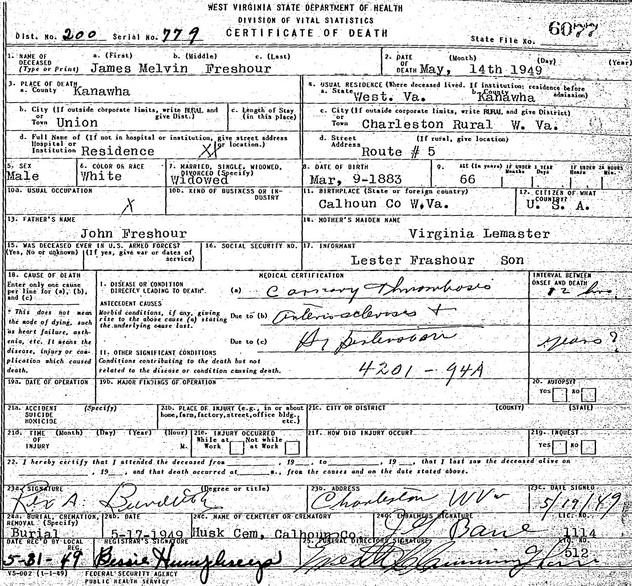 WEST VIRGINIA STATE DEPARTMENT OF HEALTH
DIVISION OF VITAL STATISTICS
CERTIFICATE OF DEATH
Dist. No. 200 Serial No. 779 State File No. 6077
1. NAME OF DECEASED (Type or Print) a. (First) b. (Middle) c. (Last)
James Melvin Freshour
2. DATE OF DEATH (Month) (Day) (Year)
May, 14th 1949
3. PLACE OF DEATH
a. County Kanawha
4. USUAL RESIDENCE (Where deceased lived. If institution: residence before admission)
a. State West. Va. b. County Kanawha
b. City (If outside corporate limits, write RURAL and give Dist.) or Town Union
c. Length of Stay (in this place)
c. City (If outside corporate limits, write RURAL and give District) or Town Charleston Rural W. Va.
d. Full Name of (If not in hospital or institution, give street address) Hospital or Institution Residence
d. Street Address (If rural, give location) Route # 5
5. SEX Male
6. COLOR OR RACE White
7. MARRIED, SINGLE, WIDOWED, DIVORCED (Specify) Widowed
8. DATE OF BIRTH Mar, 9-1883
9. AGE (In years) 66 IF UNDER 1 YEAR Months Days IF UNDER 24 HRS. Hours Min.
10a. USUAL OCCUPATION X
10b. KIND OF BUSINESS OR INDUSTRY
11. BIRTHPLACE (State or foreign country) Calhoun Co W.Va.
12. CITIZEN OF WHAT COUNTRY? U. S. A.
13. FATHER'S NAME John Freshour
14. MOTHER'S MAIDEN NAME Virginia Lemaster
15. WAS DECEASED EVER IN U.S. ARMED FORCES? (Yes, No or unknown) (If yes, give war or dates of service)
16. SOCIAL SECURITY NO.
17. INFORMANT Lester Frashour Son
18. CAUSE OF DEATH
Enter only one cause per line for (a), (b), and (c)
* This does not mean the mode of dying, such as heart failure, asthenia, etc. It means the disease, injury or complication which caused death.
MEDICAL CERTIFICATION
INTERVAL BETWEEN ONSET AND DEATH
I. DISEASE OR CONDITION DIRECTLY LEADING TO DEATH* (a) Coronary Thrombosis 12 hrs.
ANTECEDENT CAUSES
Morbid conditions, if any, giving rise to the above cause (a) stating the underlying cause last.
Due to (b) Arteriosclerosis +
Due to (c) Hypertension years ?
II. OTHER SIGNIFICANT CONDITIONS
Conditions contributing to the death but not related to the disease or condition causing death.
4201 - 94A
19a. DATE OF OPERATION
19b. MAJOR FINDINGS OF OPERATION
20. AUTOPSY? YES NO
21a. ACCIDENT SUICIDE HOMICIDE (Specify)
21b. PLACE OF INJURY (e.g., in or about home, farm, factory, street, office bldg., etc.)
21c. CITY OR DISTRICT (COUNTY) (STATE)
21d. TIME OF INJURY (Month) (Day) (Year) (Hour) M.
21e. INJURY OCCURRED While at Work Not while at Work
21f. HOW DID INJURY OCCUR?
21g. INQUEST YES NO
22. I hereby certify that I attended the deceased from , 19 to , 19 , that I last saw the deceased alive on
, 19 , and that death occurred at m., from the causes and on the date stated above.
23a. SIGNATURE (Degree or title) Rex A. Burdette
23b. ADDRESS Charleston WVa
23c. DATE SIGNED 5/19/49
24a. BURIAL, CREMATION, REMOVAL (Specify) Burial
24b. DATE 5-17-1949
24c. NAME OF CEMETERY OR CREMATORY Husk Cem, Calhoun Co.
24d. EMBALMERS SIGNATURE 1114
DATE REC'D BY LOCAL REG. 5-31-49
REGISTRAR'S SIGNATURE Bessie Humphreys
FUNERAL DIRECTORS SIGNATURE LIC. NO. 512
VS-002 (1-1-49) FEDERAL SECURITY AGENCY
PUBLIC HEALTH SERVICE